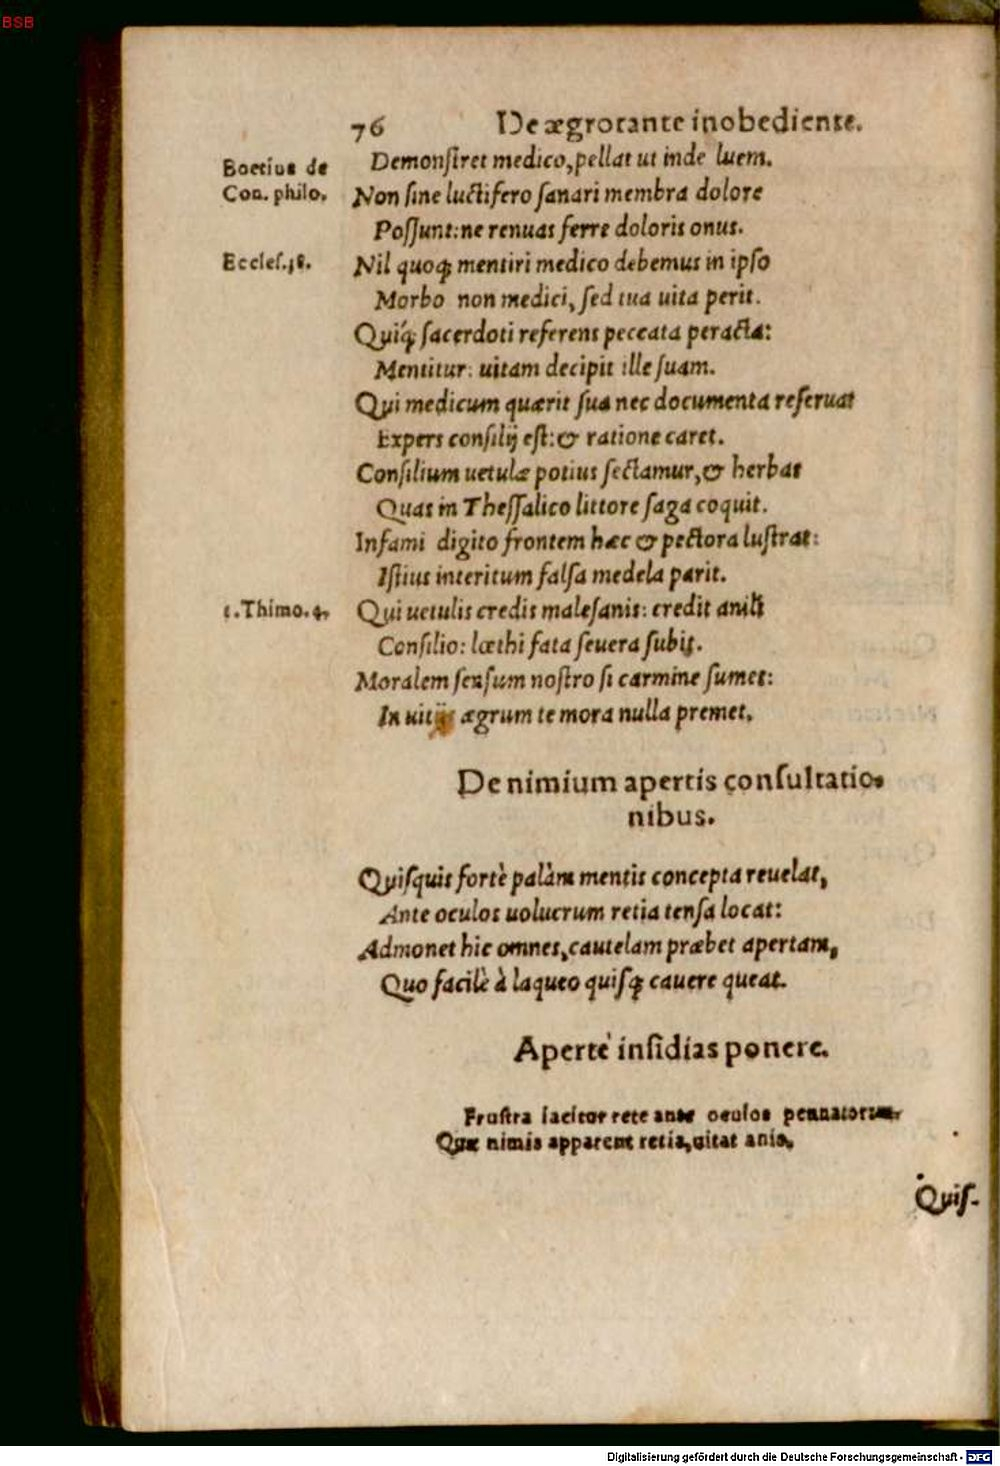 BSB
76 De ægrotante inobediente.
Demonſtret medico, pellat ut inde luem.
Boetius de
Con. philo.
Non ſine luctifero ſanari membra dolore
Poſſunt: ne renuas ferre doloris onus.
Eccleſ. 18.
Nil quoq; mentiri medico debemus in ipſo
Morbo non medici, ſed tua uita perit.
Quiq́; ſacerdoti referens peccata peracta:
Mentitur: uitam decipit ille ſuam.
Qui medicum quærit ſua nec documenta reſeruat
Expers conſilij eſt: & ratione caret.
Conſilium uetulæ potius ſectamur, & herbas
Quas in Theſſalico littore ſaga coquit.
Infami digito frontem hæc & pectora luſtrat:
Iſtius interitum falſa medela parit.
1. Thimo. 4.
Qui uetulis credis maleſanis: credit anili
Conſilio: læthi fata ſeuera ſubit.
Moralem ſenſum noſtro ſi carmine ſumes:
In uitijs ægrum te mora nulla premet.
De nimium apertis conſultatio-
nibus.
Quiſquis fortè palàm mentis concepta reuelat,
Ante oculos uolucrum retia tenſa locat:
Admonet hic omnes, cautelam præbet apertam,
Quo facilè à laqueo quiſq; cauere queat.
Apertè inſidias ponere.
Fruſtra iacitur rete ante oculos pennatorum.
Quæ nimis apparent retia, uitat auis.
Quiſ-
Digitalisierung gefördert durch die Deutsche Forschungsgemeinschaft - DFG